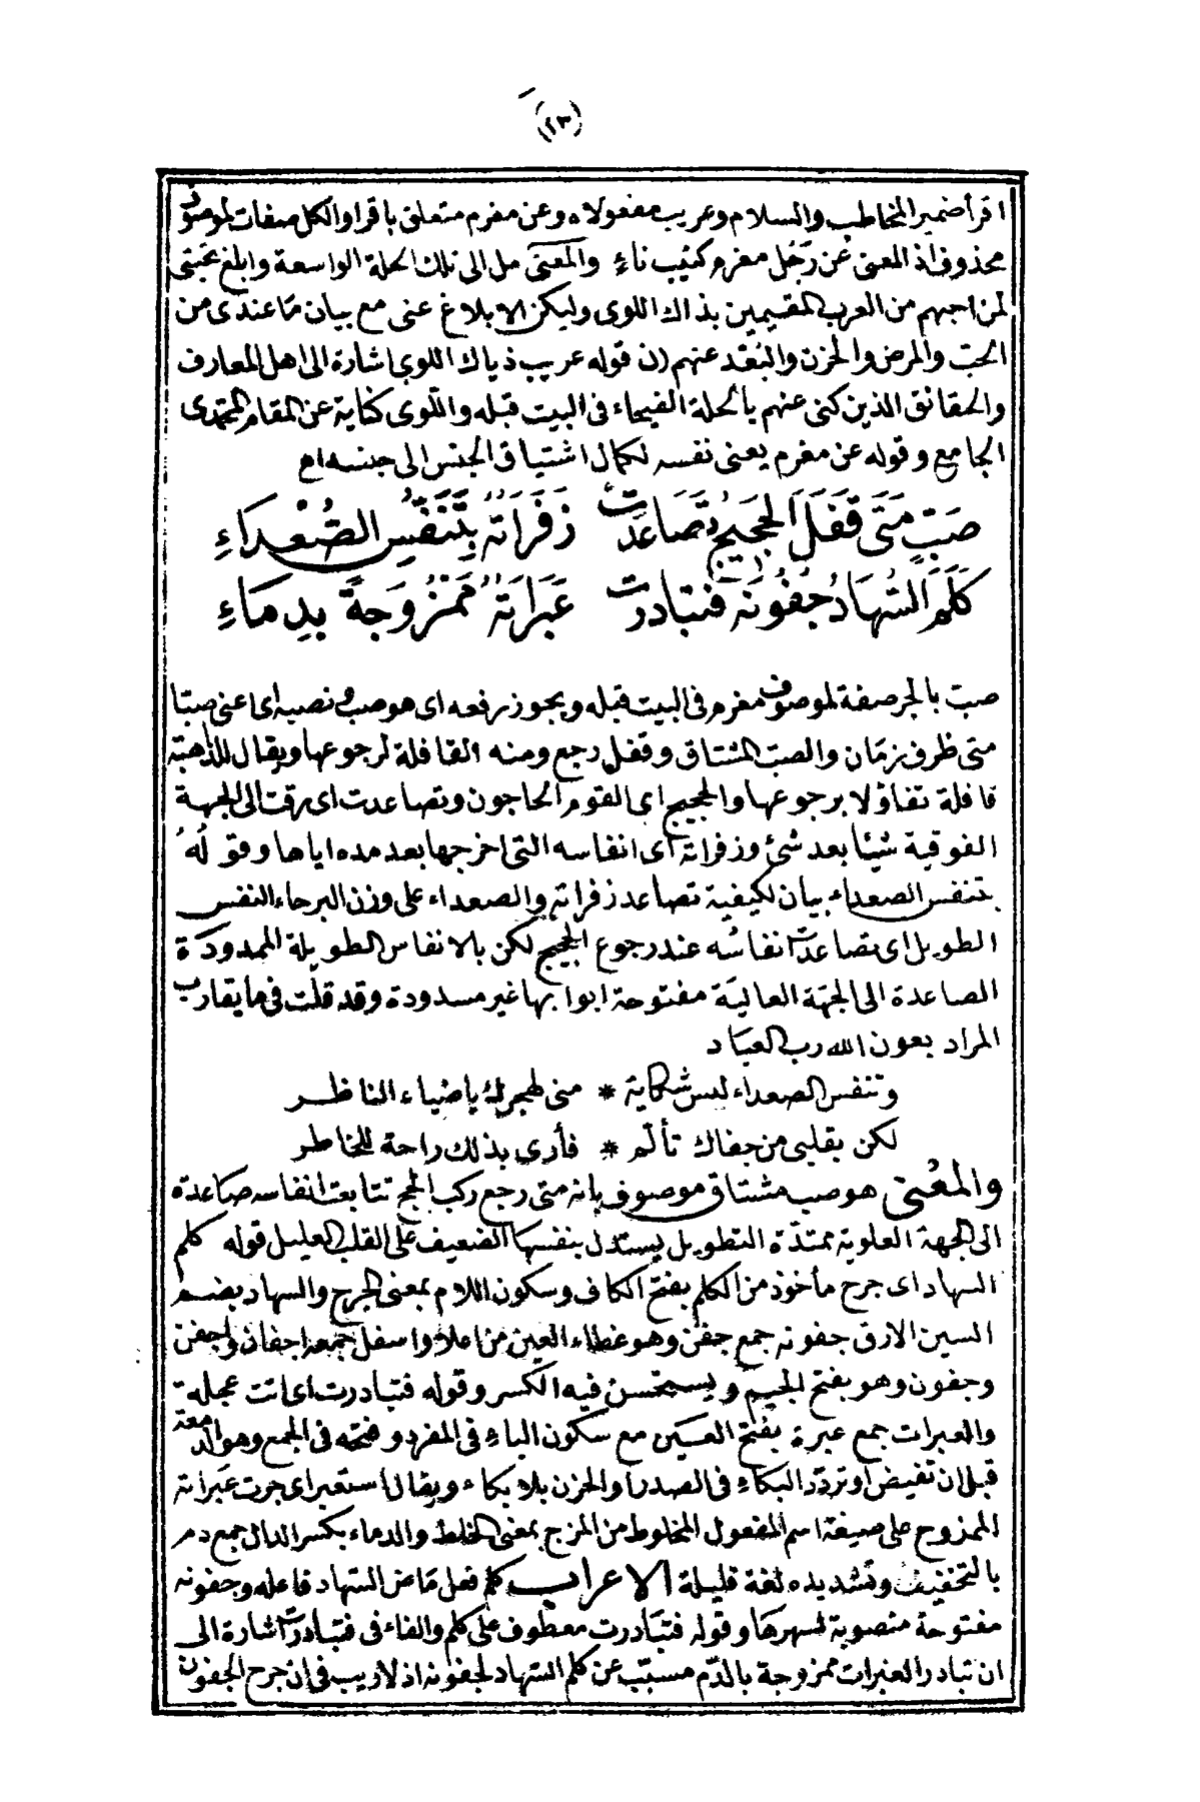 (٢٣)
اقرأ ضمير المخاطب والسلام وعريب مفعولاه وعن مغرم متعلق باقرا والكل صفات لموصوف
محذوف اذ المعنى عن رَجُل مغرم كئيب ناءٍ والمعنى مل الى تلك الحلة الواسعة وابلغ تحيتى
لمن احبهم من العرب المقيمين بذاك اللوى وليكن الابلاغ عنى مع بيان مَا عندى من
الحب والمرض والحزن والبُعد عنهم ان قوله عريب ذياك اللوى اشارة الى اهل المعارف
والحقائق الذين كنى عنهم بالحلة الفيحاء فى البيت قبله واللّوى كناية عن المقام المحمدى
الجامع وقوله عن مغرم يعنى نفسه لكمال اشتياق الجنس الى جنسه اه
صَبٍّ مَتَى قَفَلَ الحَجِيجُ تَصَاعَدَتْ زَفَرَاتُهُ بِتَنَفُّسِ الصُّعْدَاءِ
كَلَمَ السُّهَادُ جُفُونَهُ فَتبَادرتْ عَبَرَاتُهُ مَمْزُوجَةً بِدِمَاءِ
صبّ بالجر صفة لموصوف مغرم فى البيت قبله ويجوز رفعه اى هو صب ونصبه اى اعنى صبّا
متى ظرف زمَان والصبّ المشتاق وقفل رجع ومنه القافلة لرجوعها ويقال للذاهبة
قافلة تفاؤلا برجوعها والحجيج اى القوم الحاجون وتصاعدت اى رقت الى الجهة
الفوقية شيئا بعد شئ وزفراته اى انفاسه التى اخرجها بعد مده اياها وقولُهُ
بتنفس الصعداء بيان لكيفية تصاعد زفراته والصعداء على وزن البرحاء النفس
الطويل اى تصاعدت انفاسُه عند رجوع الحجيج لكن بالانفاس الطويلة الممدودَة
الصاعدة الى الجهَة العاليَة مفتوحة ابوابها غير مسدودة وقد قلت فى ما يقارب
المراد بعون الله رب العبَاد
وتنفس الصعداء ليس شكاية * منى لهجرك يا ضياء الناظر
لكن بقلبى من جفاك تألّم * فأرى بذلك راحة للخاطر
والمعْنى هو صب مشتاق موصوف بانه متى رجع ركب الحج تتابعت انفاسه صَاعدة
الى الجهة العلوية ممتدّة التطويل يستدل بنفسها الضعيف على القلب العليل قوله كلم
السهاد اى جرح مأخوذ من الكلم بفتح الكاف وسكون اللام بمعنى الجرح والسهاد بضم
السين الارق جفونه جمع جفن وهو غطاء العين من اعلا واسفل جمعه اجفان واجفن
وجفون وهو بفتح الجيم ويستحسن فيه الكسر وقوله فتبادرت اى اتت عجلة
والعبرات جمع عبرة بفتح العين مع سكون الباء فى المفرد وفتحه فى الجمع وهو الدمعة
قبل ان تفيض او تردّد البكاء فى الصدر او الحزن بلا بكاء ويقال استعبر اى جرت عَبراته
الممزوج على صيغة اسم المفعول المخلوط من المزج بمعنى الخلط والدماء بكسر الدال جمع دم
بالتخفيف وتشديده لغة قليلة الاعراب كلم فعل مَاض السّهاد فاعله وجفونه
مفتوحة منصوبة لسهرهَا وقوله فتبَادرت معطوف على كلم والفاء فى فتبادرت اشارة الى
ان تبادر العبرات ممزوجة بالدّم مسبّب عن كلم السّهاد لجفونه اذ لا ريب فى ان جرح الجفون